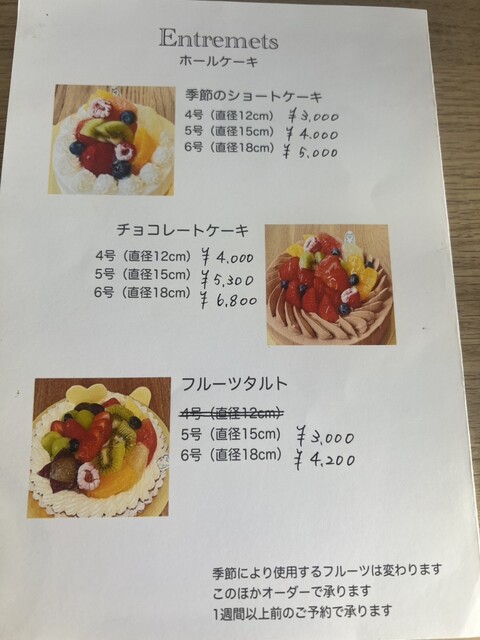 Entremets
ホールケーキ
季節のショートケーキ
4号（直径12cm） ¥3,000
5号（直径15cm） ¥4,000
6号（直径18cm） ¥5,000
チョコレートケーキ
4号（直径12cm） ¥4,000
5号（直径15cm） ¥5,300
6号（直径18cm） ¥6,800
フルーツタルト
4号（直径12cm）
5号（直径15cm） ¥3,000
6号（直径18cm） ¥4,200
季節により使用するフルーツは変わります
このほかオーダーで承ります
1週間以上前のご予約で承ります